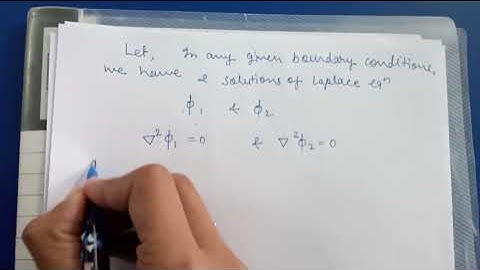 Let, In any given boundary conditions,
we have 2 solutions of Laplace eqⁿ
ϕ₁ & ϕ₂
∇²ϕ₁ = 0 & ∇²ϕ₂ = 0